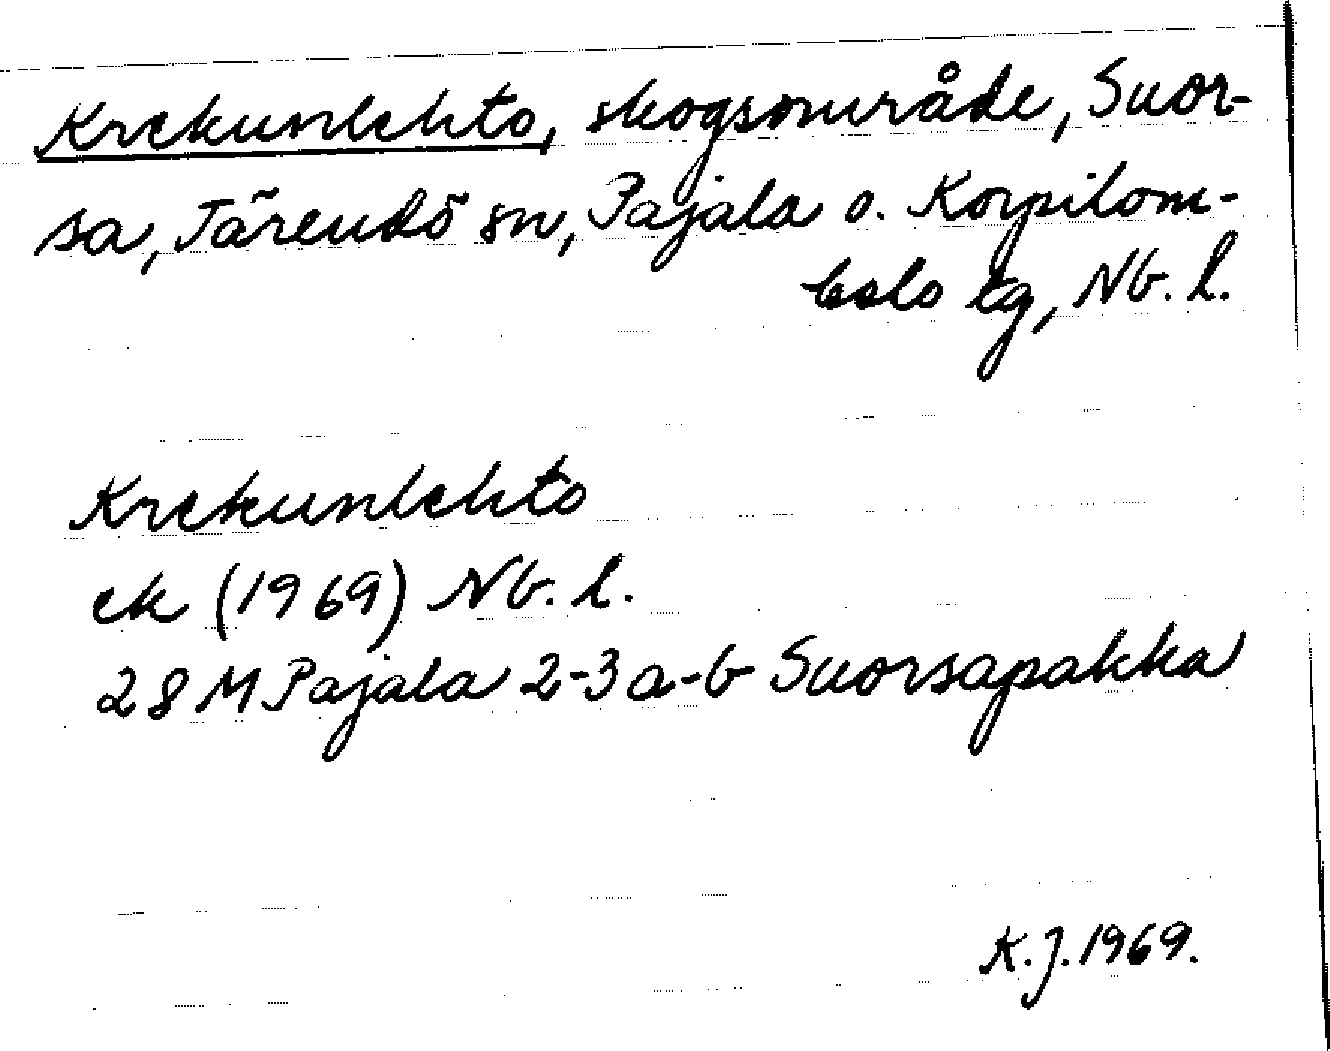 Krekunlehto, skogsområde, Suor-
sa, Tärendö sn, Pajala o. Korpilom-
bolo tg, Nb. l.
Krekunlehto
ek (1969) Nb. l.
28 M Pajala 2-3 a-b Suorsapakka
K. J. 1969.